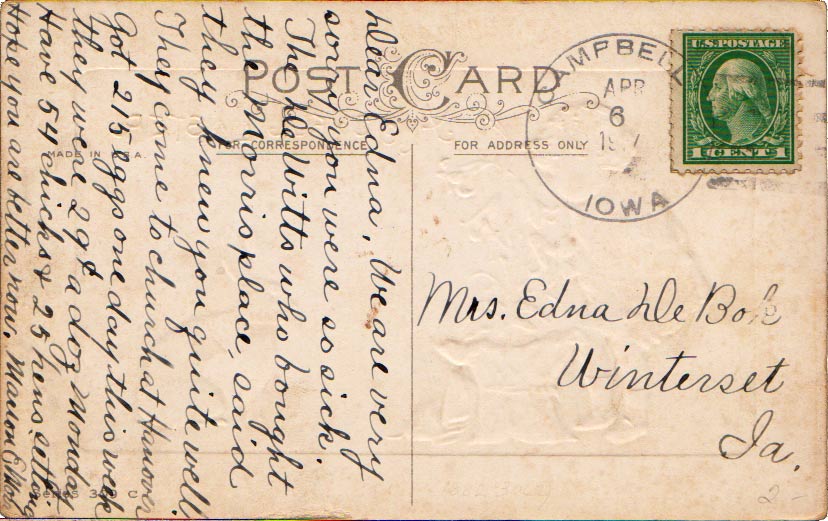 POST CARD
FOR CORRESPONDENCE
FOR ADDRESS ONLY
MADE IN U.S.A.
Series 3
CAMPBELL
APR
6
IOWA
U.S. POSTAGE
1 CENT 1
Dear Edna, We are very
sorry you were so sick.
The De Witts who bought
the Morris place, said
they knew you quite well.
They come to church at Hanover
Got 215 eggs one day this week
they were 29¢ a doz Monday
Have 54 chicks & 25 hens setting
Hope you are better now. Marion
Mrs. Edna De Bok
Winterset
Ia.
2-